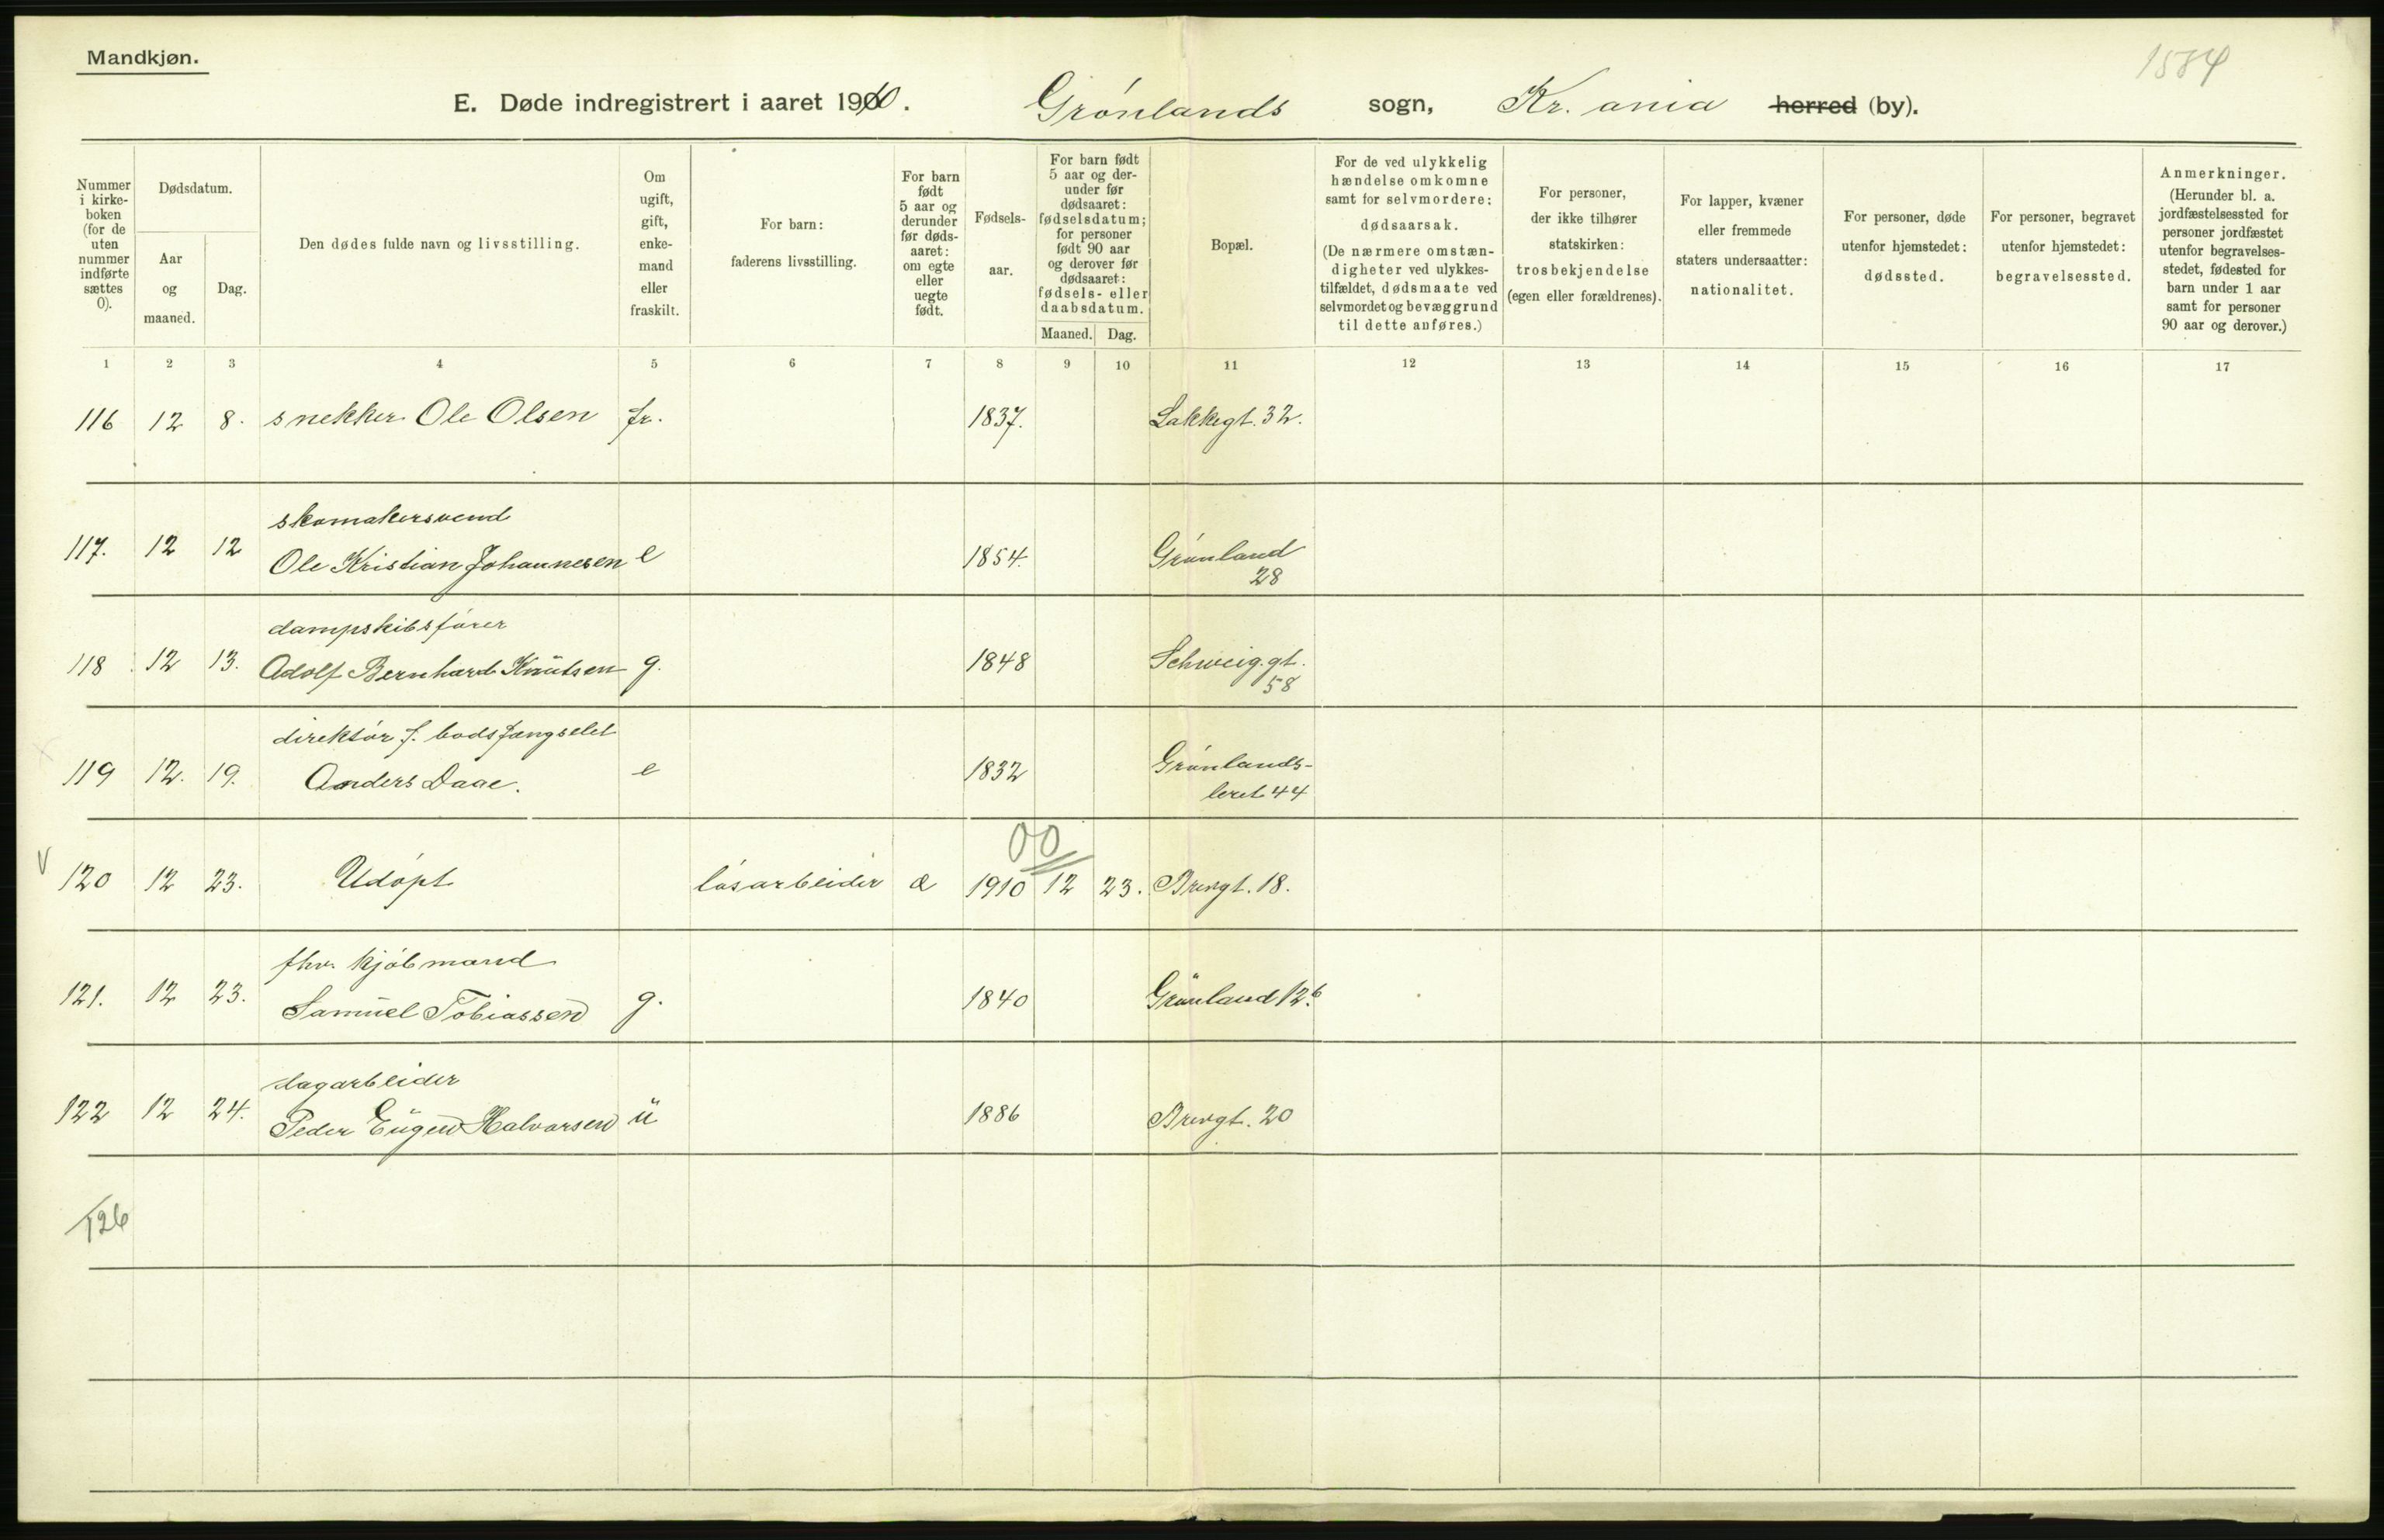 Mandkjøn.
1584
E. Døde indregistrert i aaret 1910. Grónlands sogn, Kr.ania herred (by).
Nummer i kirkeboken (for de uten nummer indførte sættes 0).
Dødsdatum.
Aar og maaned.
Dag.
Den dødes fulde navn og livsstilling.
Om ugift, gift, enkemand eller fraskilt.
For barn: faderens livsstilling.
For barn født 5 aar og derunder før dødsaaret: om egte eller uegte født.
Fødselsaar.
For barn født 5 aar og derunder før dødsaaret: fødselsdatum; for personer født 90 aar og derover før dødsaaret: fødsels- eller daabsdatum.
Maaned. Dag.
Bopæl.
For de ved ulykkelig hændelse omkomne samt for selvmordere: dødsaarsak. (De nærmere omstændigheter ved ulykkestilfældet, dødsmaate ved selvmordet og bevæggrund til dette anføres.)
For personer, der ikke tilhører statskirken: trosbekjendelse (egen eller forældrenes).
For lapper, kvæner eller fremmede staters undersaatter: nationalitet.
For personer, døde utenfor hjemstedet: dødssted.
For personer, begravet utenfor hjemstedet: begravelsessted.
Anmerkninger. (Herunder bl. a. jordfæstelsessted for personer jordfæstet utenfor begravelsesstedet, fødested for barn under 1 aar samt for personer 90 aar og derover.)
1 2 3 4 5 6 7 8 9 10 11 12 13 14 15 16 17
116 12 8. snekker Ole Olsen fr. 1837. Lakkegt. 32.
skomakersvend
117. 12 12 Ole Kristian Johannesen e 1854. Grónland
28
dampskibsfórer
118 12 13. Adolf Bernhard Knutsen g. 1848 Schweig.gt.
58
direktór f. bodsfængselet
119 12. 19. Anders Daae. e 1832 Grónlands-
leret 44
00
V 120 12 23. Udópt lósarbeider æ 1910 12 23. Brevgt. 18.
fhv. kjóbmand
121. 12 23. Samuel Tobiassen g. 1840 Grónland 12b.
dagarbeider
122 12 24. Peder Eugen Halvorsen u 1886 Brevgt. 20
126